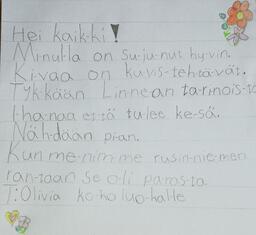 Hei kaik-ki!
Minul-la on su-ju-nut hy-vin.
Ki-vaa on ku-vis-teh-tä-vät.
Tyk-kään Lin-nean ta-rinois-ta
I-ha-naa et-tä tu-lee ke-sä.
Näh-dään pian.
Kun me-nim-me
ran-taan Se o-li pa-ras-ta
T: Olivia